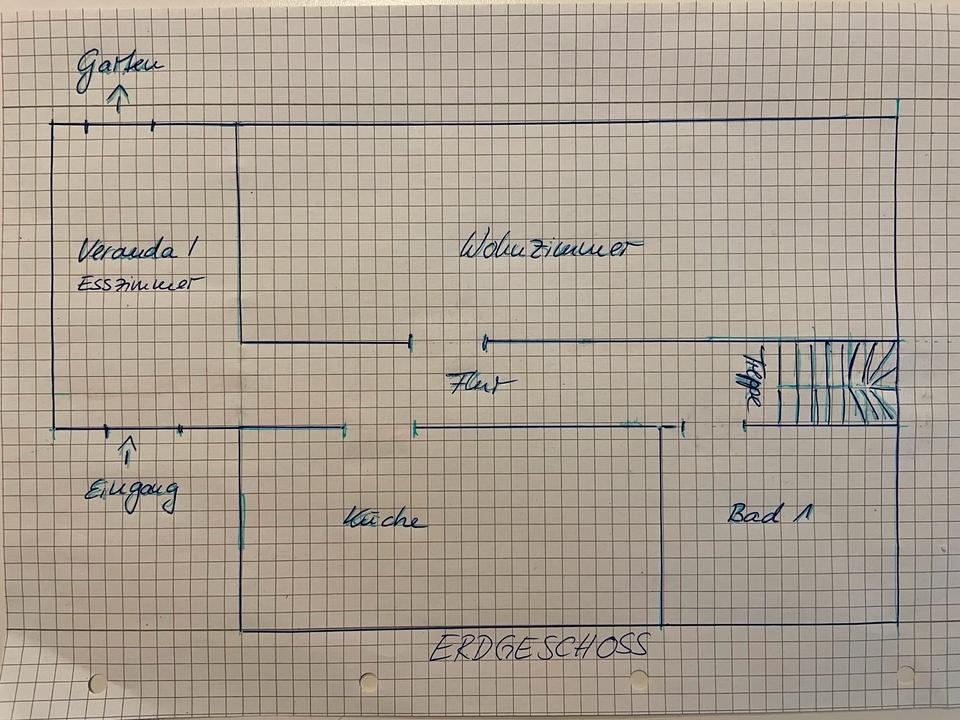 Garten
Veranda /
Esszimmer
Wohnzimmer
Flur
Treppe
Eingang
Küche
Bad 1
ERDGESCHOSS